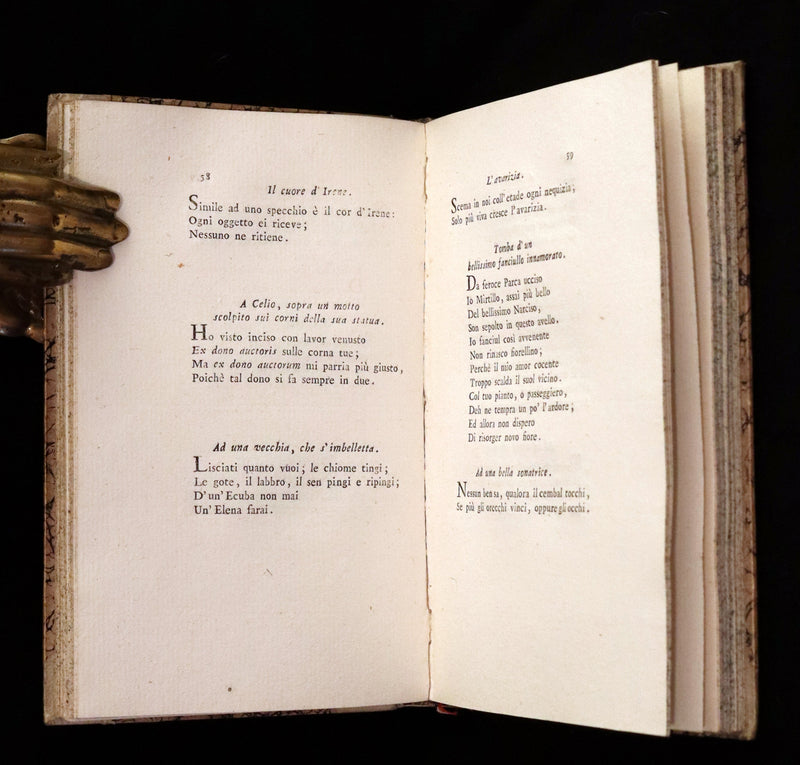 58
Il cuore d'Irene.
Simile ad uno specchio è il cor d'Irene:
Ogni oggetto ei riceve;
Nessuno ne ritiene.
A Celio, sopra un motto
scolpito sui corni della sua statua.
Ho visto inciso con lavor venusto
Ex dono auctoris sulle corna tue;
Ma ex dono auctorum mi parria più giusto,
Poichè tal dono si fa sempre in due.
Ad una vecchia, che s'imbelletta.
Lisciati quanto vuoi; le chiome tingi;
Le gote, il labbro, il sen pingi e ripingi;
D'un'Ecuba non mai
Un'Elena farai.
59
L'avarizia.
Scema in noi coll'etade ogni nequizia;
Solo più viva cresce l'avarizia.
Tomba d'un
bellissimo fanciullo innamorato.
Da feroce Parca ucciso
Io Mirtillo, assai più bello
Del bellissimo Narciso,
Son sepolto in questo avello.
Io fanciul così avvenente
Non rinasco fiorellino;
Perchè il mio amor cocente
Troppo scalda il suol vicino.
Col tuo pianto, o passeggiero,
Deh ne tempra un po' l'ardore;
Ed allora non dispero
Di risorger novo fiore.
Ad una bella sonatrice.
Nessun ben sa, qualora il cembal tocchi,
Se più gli orecchi vinci, oppure gli occhi.